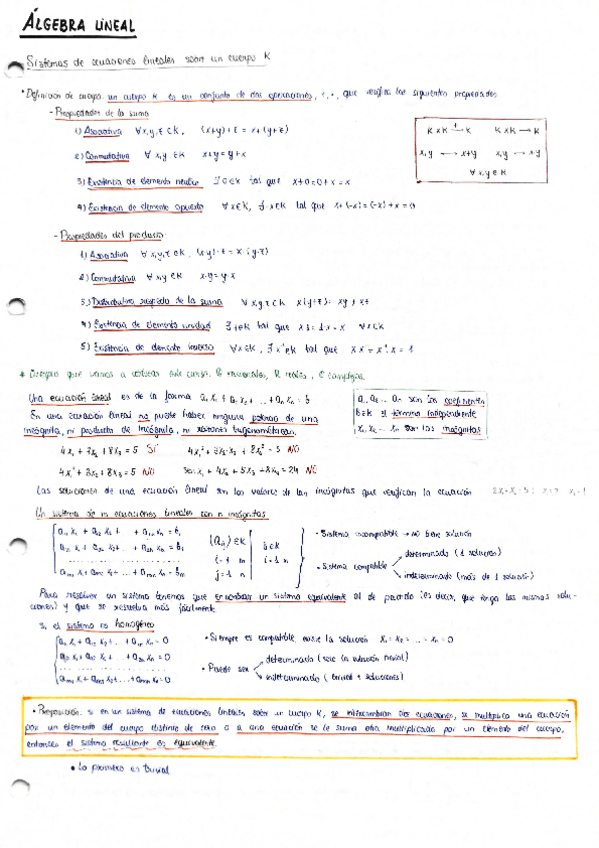 ÁLGEBRA LINEAL
Sistemas de ecuaciones lineales sobre un cuerpo K
• Definición de cuerpo: un cuerpo K es un conjunto de dos operaciones, +, ·, que verifica las siguientes propiedades
- Propiedades de la suma
1) Asociativa ∀x,y,z ∈ K, (x+y)+z = x+(y+z)
2) Conmutativa ∀ x,y ∈ K x+y = y+x
3) Existencia de elemento neutro ∃ 0 ∈ K tal que x+0=0+x=x
4) Existencia de elemento opuesto ∀x∈K, ∃-x∈K tal que x+(-x)=(-x)+x=0
K×K → K K×K → K
x,y → x+y x,y → x·y
∀x,y ∈ K
- Propiedades del producto
1) Asociativa ∀ x,y,z ∈ K, (x·y)·z = x·(y·z)
2) Conmutativa ∀ x,y ∈ K x·y = y·x
3) Distributiva respecto de la suma ∀ x,y,z ∈ K x(y+z) = xy + xz
4) Existencia de elemento unidad ∃ 1∈K tal que x·1=1·x=x ∀x∈K
5) Existencia de elemento inverso ∀x∈K, ∃ x⁻¹∈K tal que x·x⁻¹=x⁻¹·x=1
* Cuerpos que vamos a utilizar este curso: Q racionales, R reales, C complejos
Una ecuación lineal es de la forma a₁x₁ + a₂x₂ + ... + aₙxₙ = b
En una ecuación lineal no puede haber ninguna potencia de una
incógnita, ni producto de incógnita, ni razones trigonométricas
a₁, a₂ ... aₙ son los coeficientes
b∈K el término independiente
x₁, x₂ ... xₙ son las incógnitas
4x₁ + 3x₂ + 8x₃ = 5 SÍ 4x₁² + 3x₂·x₃ + 8x₂² = 5 NO
4x₁² + 3x₂ + 8x₃ = 5 NO sen x₁ + 4x₂ + 5x₃ + 8x₄ = 24 NO
Las soluciones de una ecuación lineal son los valores de las incógnitas que verifican la ecuación
Un sistema de m ecuaciones lineales con n incógnitas
a₁₁x₁ + a₁₂x₂ + ... + a₁ₙxₙ = b₁
a₂₁x₁ + a₂₂x₂ + ... + a₂ₙxₙ = b₂
..................
aₘ₁x₁ + aₘ₂x₂ + ... + aₘₙxₙ = bₘ
(aᵢⱼ) ∈ K
i=1..m
j=1..n
b∈K
i=1..n
• Sistema incompatible → no tiene solución
• Sistema compatible
determinado (1 solución)
indeterminado (más de 1 solución)
Para resolver un sistema tenemos que encontrar un sistema equivalente al de partida (es decir, que tenga las mismas solu-
ciones) y que se resuelva más fácilmente
Si el sistema es homogéneo
a₁₁x₁ + a₁₂x₂ + ... + a₁ₙxₙ = 0
a₂₁x₁ + a₂₂x₂ + ... + a₂ₙxₙ = 0
............
aₘ₁x₁ + aₘ₂x₂ + ... + aₘₙxₙ = 0
• Siempre es compatible, existe la solución x₁ = x₂ = ... = xₙ = 0
• Puede ser
determinado (solo la solución trivial)
indeterminado (trivial + soluciones)
• Proposición: si en un sistema de ecuaciones lineales, sobre un cuerpo K, se intercambian dos ecuaciones, se multiplica una ecuación
por un elemento del cuerpo distinto de cero o a una ecuación se le suma otra multiplicada por un elemento del cuerpo,
entonces el sistema resultante es equivalente.
• La primera es trivial